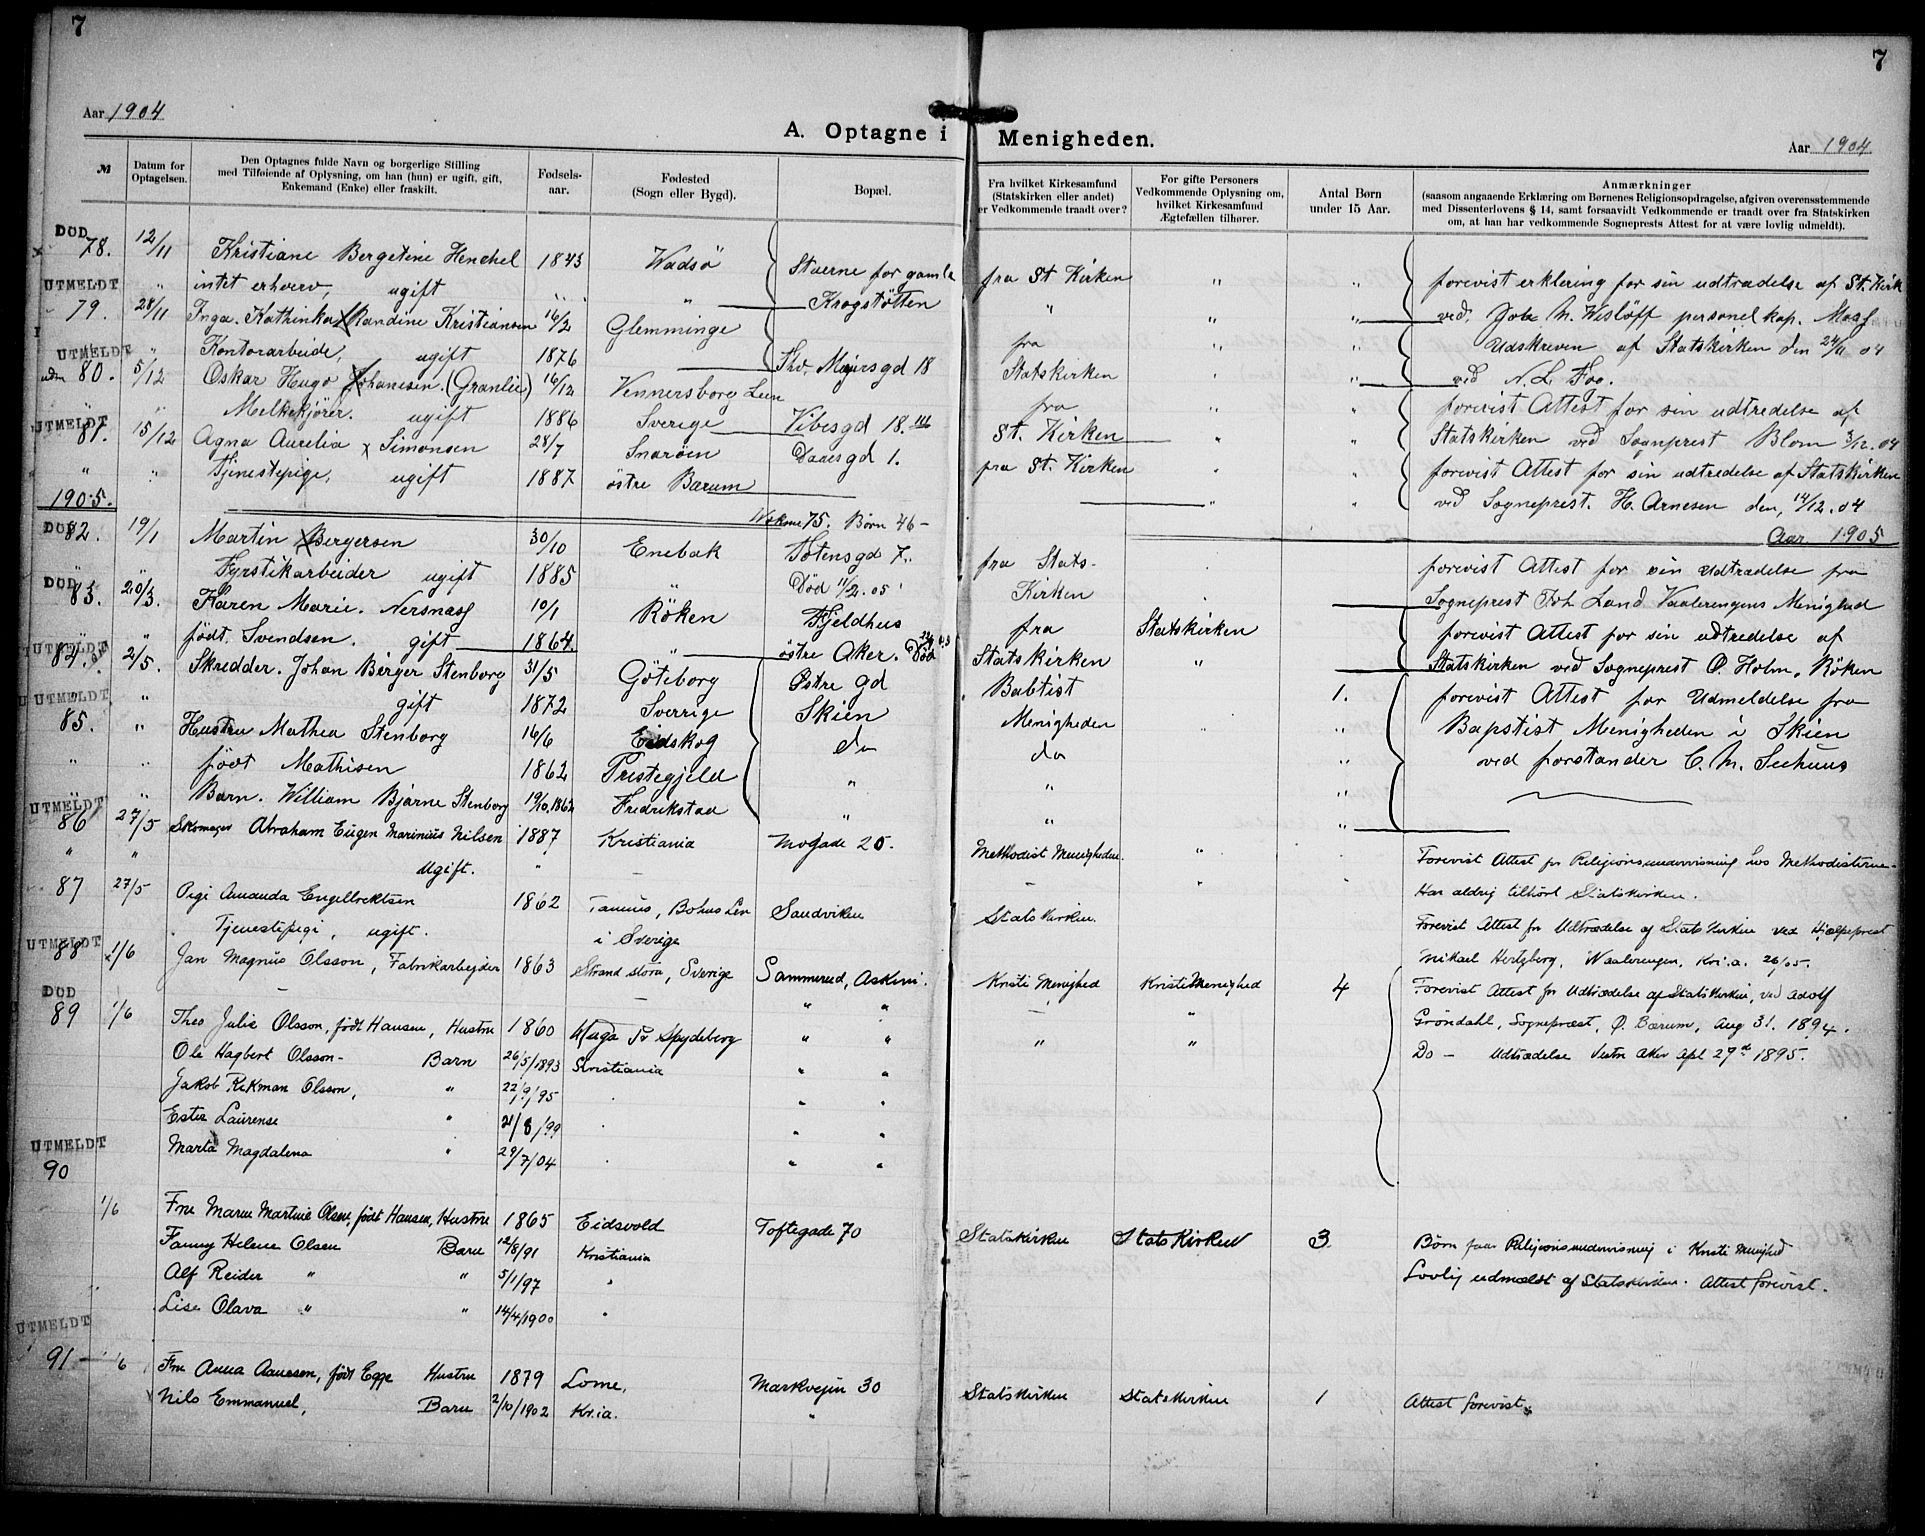 7
7
Aar 1904
A. Optagne i Menigheden.
Aar 1904
№
Datum for Optagelsen.
Den Optagnes fulde Navn og borgerlige Stilling
med Tilføiende af Oplysning, om han (hun) er ugift, gift,
Enkemand (Enke) eller fraskilt.
Fødsels-
aar.
Fødested
(Sogn eller Bygd).
Bopæl.
Fra hvilket Kirkesamfund
(Statskirken eller andet)
er Vedkommende traadt over?
For gifte Personers
Vedkommende Oplysning om,
hvilket Kirkesamfund
Ægtefællen tilhører.
Antal Børn
under 15 Aar.
Anmærkninger
(saasom angaaende Erklæring om Børnenes Religionsopdragelse, afgiven overensstemmende
med Dissenterlovens § 14, samt forsaavidt Vedkommende er traadt over fra Statskirken
om, at han har vedkommende Sogneprests Attest for at være lovlig udmeldt).
DØD
78. 12/11 Kristiane Bergetine Henchel 1843 Wadsö Staerne for gamle fra St Kirken " " forevist erklering for sin udtrædelse af St. Kirk
UTMELDT " intet erhverv, ugift " " Krogstøtten " " " ved,
79. 28/11 Inga. Kathinka Randine Kristiansen 16/2 Glemminge personel kap. Moss
" Kontorarbeide, ugift 1876 Thv. Meyersgd 18 fra " " Udskreven af Statskirken den 24/11 04
UTMELDT
udm 80. 5/12 Oskar Hugo Johanesen. (Granlie) 16/12 Vennersborg Len Statskirken " " ved N. L. Foo.
" " Melkekjører. ugift 1886 Sverige Vibesgd 18. III fra " " forevist Attest for sin udtredelse af
UTMELDT
81. 15/12 Agna Aurelia x Simonsen 28/7 Snarøen Daaesgd 1. St. Kirken " " Statskirken ved Sogneprest Blom 3/12. 04
" " Tjenestepige, ugift 1887 østre Barum fra St. Kirken " " forevist Attest for sin udtredelse af Statskirken
" " ved Sogneprest. H. Arnesen den, 14/12. 04
1905. 75. Børn 46 - Aar 1905
DØD
82. 19/1 Martin Bergersen 30/10 Enebak Totensgd 7. fra Stats- forevist Attest for sin udtrædelse fra
" " Fyrstikarbeider ugift 1885 " Død 11/2. 05 Kirken Sogneprest Joh Land Vaalerengens Menighed
DØD
83. 20/3. Karen Marie. Nersnæs 10/1 Röken Fjeldhus fra Statskirken forevist Attest for sin udtredelse af
" " født. Svendsen. gift 1864 " østre Aker. Død Statskirken " Statskirken ved Sogneprest O. Holm. Röken
UTMELDT
84. 2/5. Skredder. Johan Birger Stenborg 31/5 Göteborg Østre gd Babtist 1. forevist Attest for Udmeldelse fra
" gift 1872 Sverrige Skien Menigheden " Baptist Menigheden i Skien
UTMELDT
85. " Hustru Mathea Stenborg 16/6 Eidskog do do " ved forstander C. M. Seehuus
" " født Mathisen 1862 Prestegjeld " " "
" " Barn. William Bjarne Stenborg Fredrikstad " " "
UTMELDT
86 27/5 Skomager Abraham Eugen Marinius Nilsen 1887 Kristiania Mogade 20. Methodist Menigheden. " Forevist Attest for Religionsundervisning hos Methodisterne -
" " Ugift. " - - " Har aldrig tilhört Statskirken.
87 27/5 Pige Amanda Engelbrektsen 1862 Tanums, Bohus Len Sandviken Statskirken. Forevist Attest for Udtrædelse af Stats Kirken ved Hjælpeprest
Tjenestepige, ugift. i Sverige Mikael Hertzberg, Vaalerengen, Kri.a. 26/05.
UTMELDT
88 x1/6 Jan Magnus Olsson, Fabrikarbejder 1863 Strand stora, Sverige Sammerud, Askim. Kristi Menighed Kristi Menighed 4 Forevist Attest for Udtrædelse af Stats Kirken, ved Adolf
- - " " - " Gröndahl, Sognepræst, Ø. Bærum, Aug 31. 1894.
DØD
89 1/6 Thea Julie Olsson, født Hansen, Hustru 1860 Spydeberg " " " " Do - Udtrædelse Vestre Aker Apl 27de 1895.
Ole Hagbert Olsson - Barn 26/5/1893 Kristiania " "
Jakob Rikman Olsson, " 22/9/95 . " "
Ester Laurense " 21/8/99 . " "
Marta Magdalena " 29/7/04 . " "
UTMELDT
90
1/6 Fru Maren Martine Olsen, født Hansen, Hustru 1865 Eidsvold Toftegade 70 Statskirken Stats Kirken 3 Børn faar Religionsundervisning i Kristi Menighed
Fanny Helene Olsen Barn 12/8/91 Kristiania Lovlig udmeldt af Statskirken. Attest forevist.
Alf Reidar " " 5/1/97 "
Lise Olava " " 14/4/1900 "
UTMELDT
91 - 1/6 Fru Anna Aanesen, født Egge Hustru 1879 Lome, Markvejen 30 Statskirken Statskirken 1 Attest forevist.
Nils Emmanuel, Barn 2/10/1902 Kr.ia. "